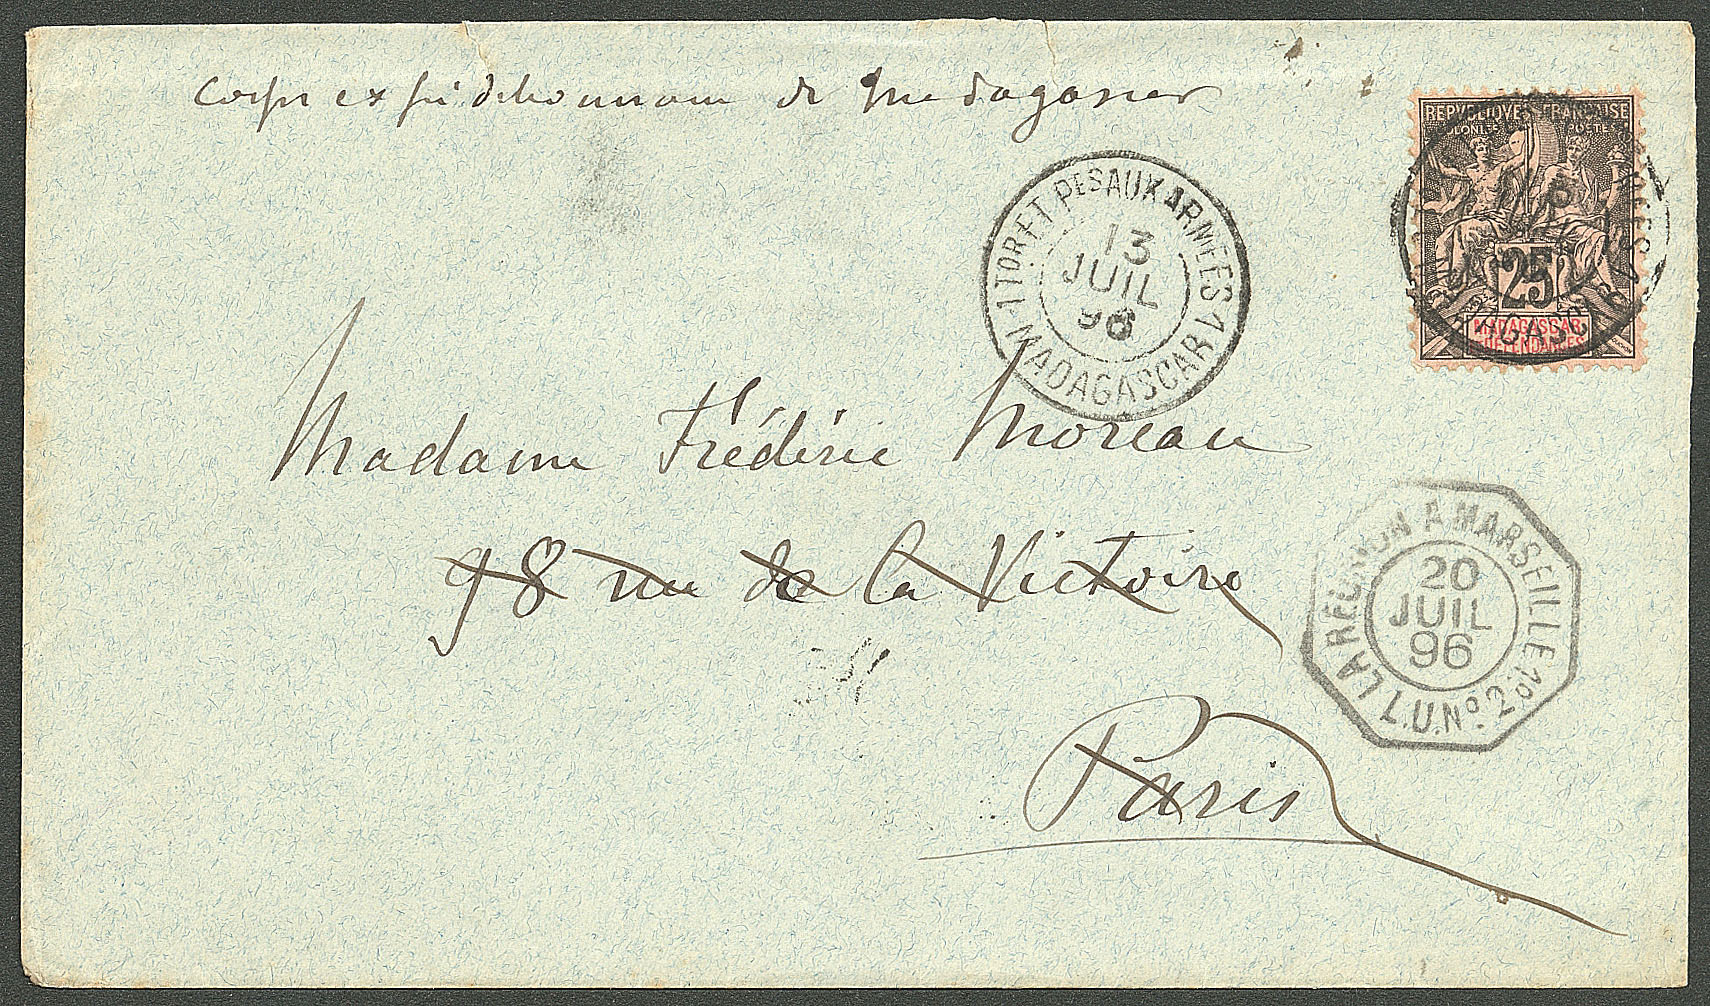 Corps expéditionnaire de Madagascar
REPUBLIQUE FRANÇAISE
COLONIES POSTES
25
MADAGASCAR
DÉPENDANCES
TOR ET PES AUX ARMÉES 1
13
JUIL
96
MADAGASCAR
Madame Frédéric Moreau
98 rue de la Victoire
Paris
LA REUNION A MARSEILLE
20
JUIL
96
L.U. Nº 2